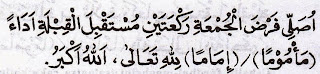 اُصَلِّى فَرْضَ الْجُمْعَةِ رَكْعَتَيْنِ مُسْتَقْبِلَ الْقِبْلَةِ اَدَاءً
(مَأْمُوْمًا)/(إِمَامًا) لِلّٰهِ تَعَالَى، اَللّٰهُ أَكْبَرُ.